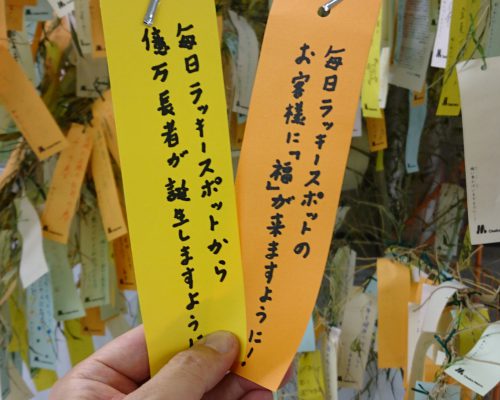 毎日ラッキースポットの
お客様に「福」が来ますように！
毎日ラッキースポットから
億万長者が誕生しますように